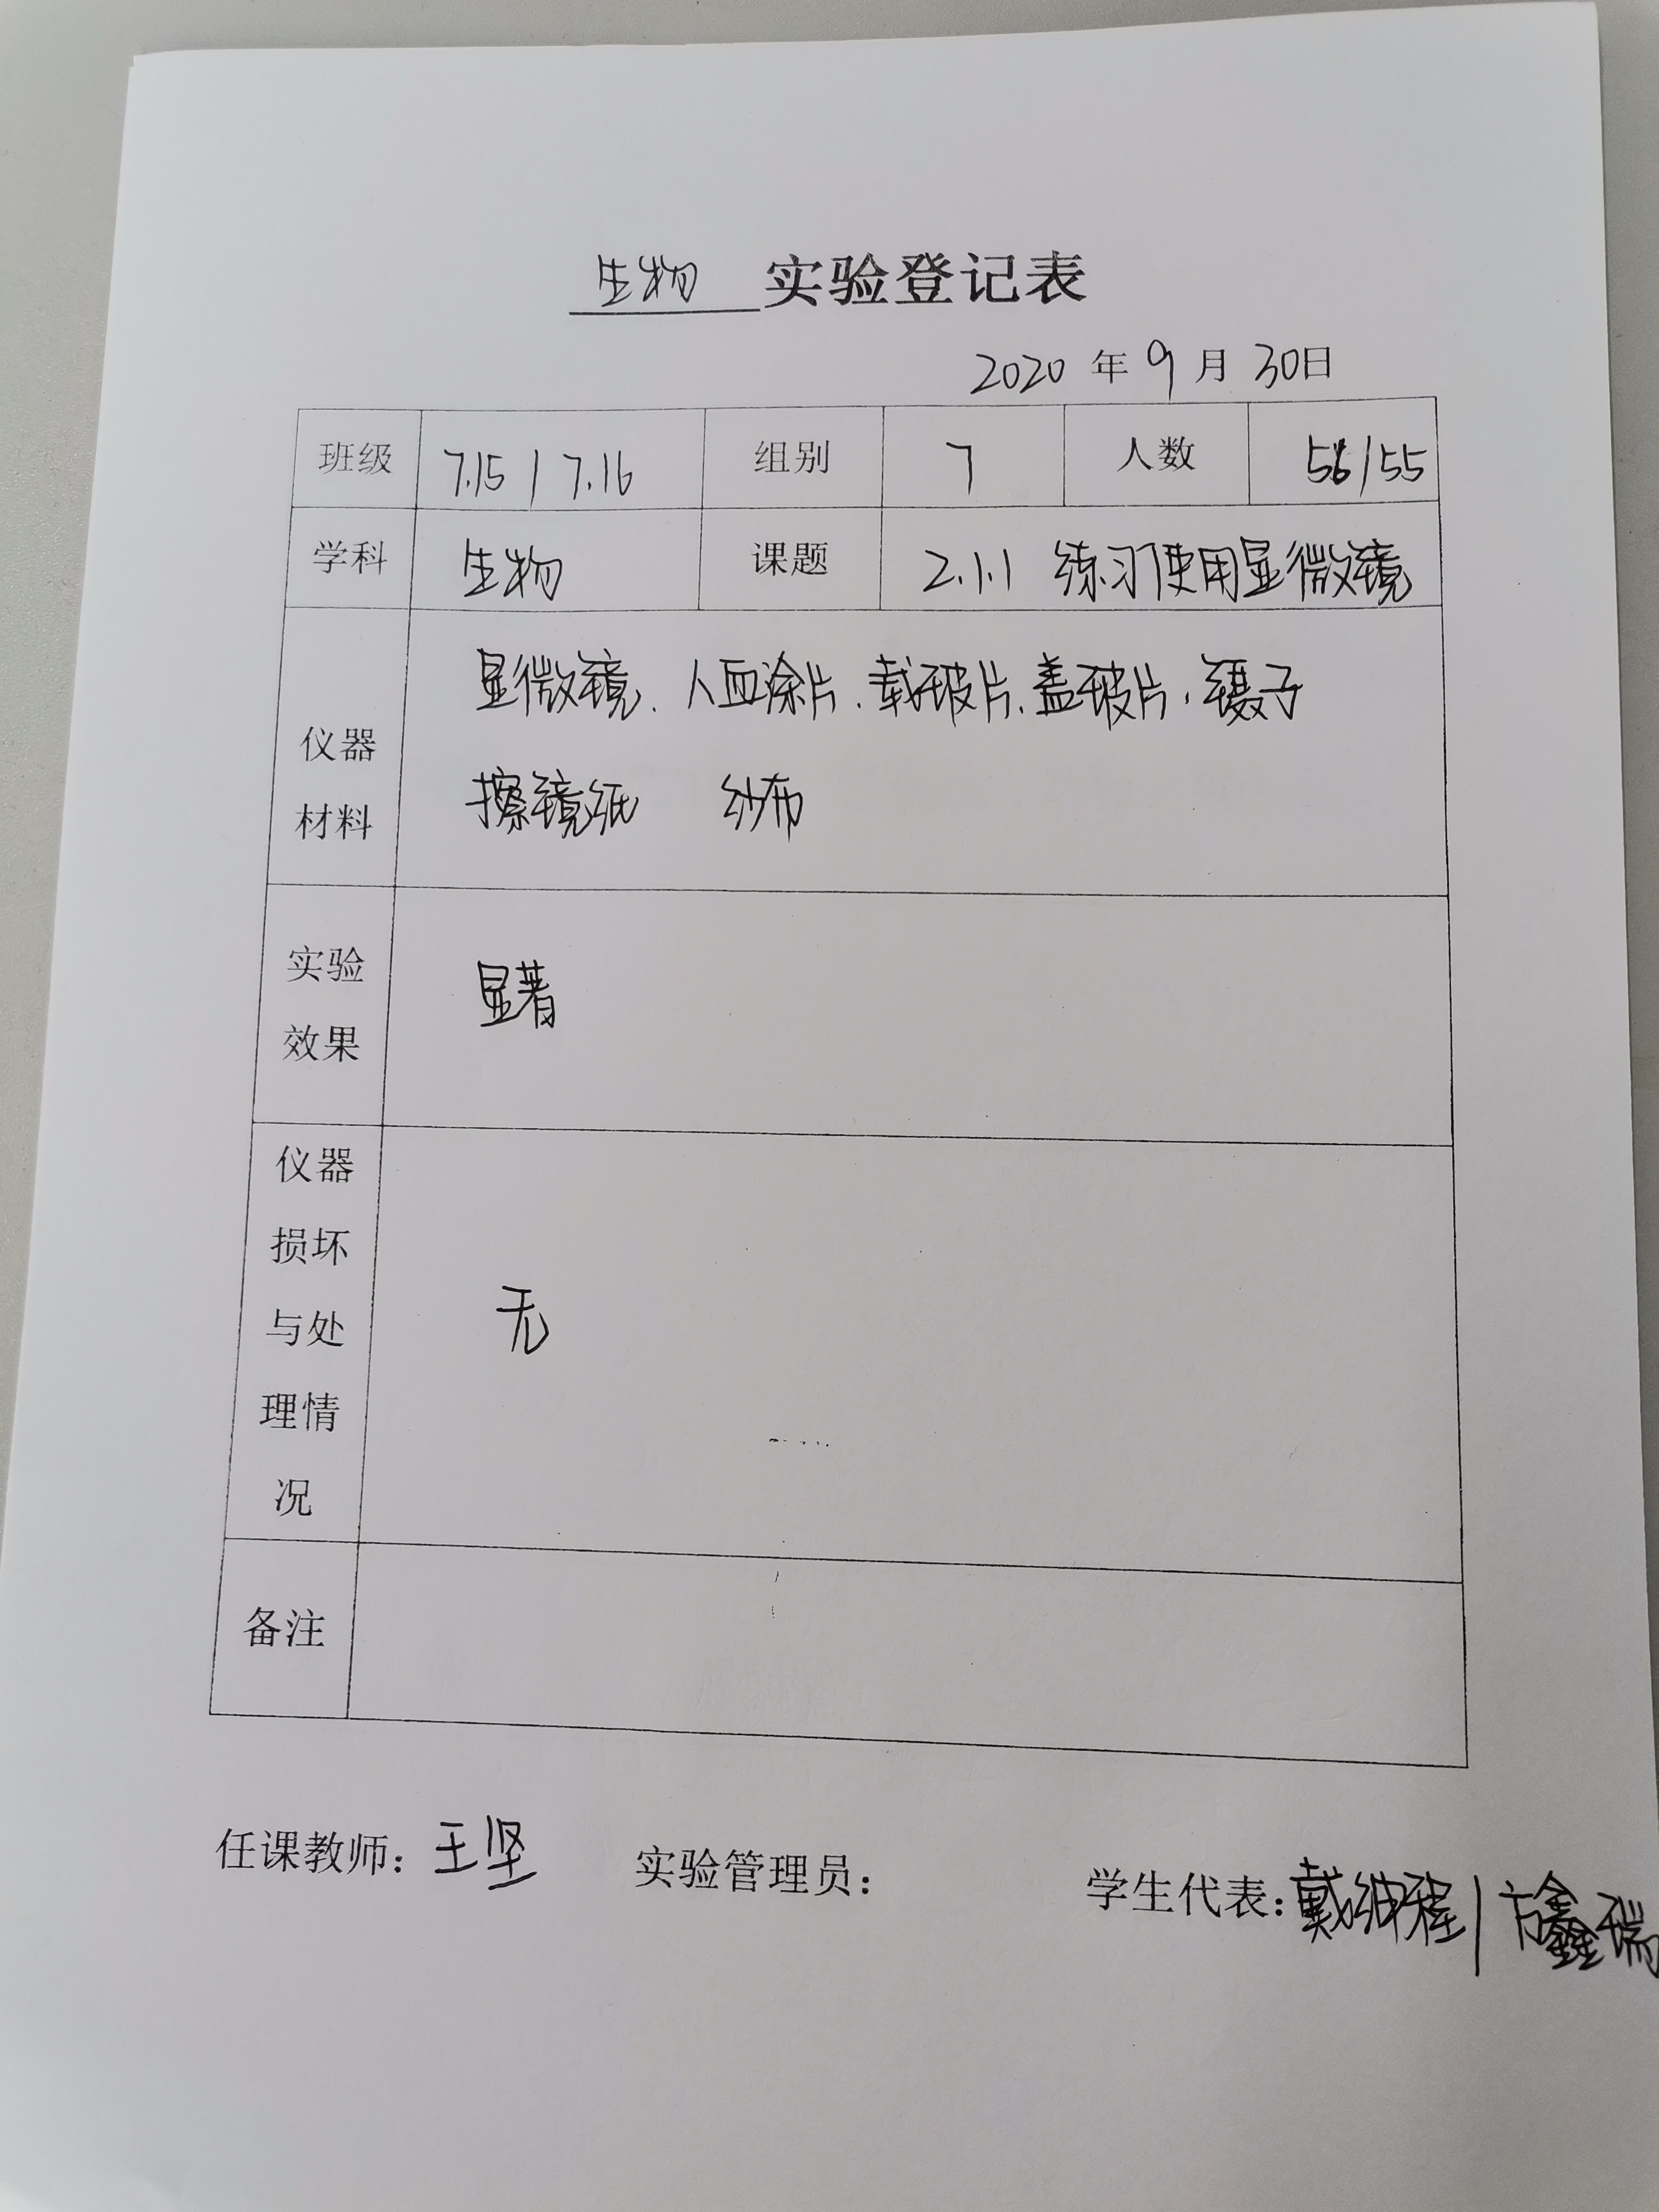 生物 实验登记表
2020 年 9 月 30日
班级 7.15 / 7.16 组别 7 人数 56/55
学科 生物 课题 2.1.1 练习使用显微镜
仪器材料 显微镜、人血涂片、载玻片、盖玻片、镊子
擦镜纸 纱布
实验效果 显著
仪器损坏与处理情况 无
备注
任课教师: 王坚 实验管理员: 学生代表: 戴绅程 / 方鑫瑞